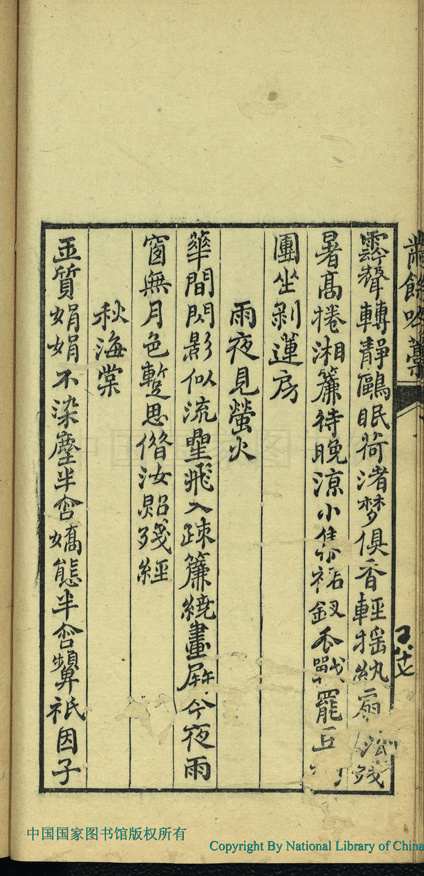 餘吟藁
聲轉靜鷗眠荷渚夢俱香輕搖紈扇殘
暑高捲湘簾待晚涼小集裙釵戰罷
團坐剝蓮房
雨夜見螢火
華間閃影似流星飛入疎簾繞畫屏今夜雨
窗無月色蹔思偕汝照殘經
秋海棠
玉質娟娟不染塵半含嬌態半含顰祇因子
中国国家图书馆版权所有
Copyright By National Library of China